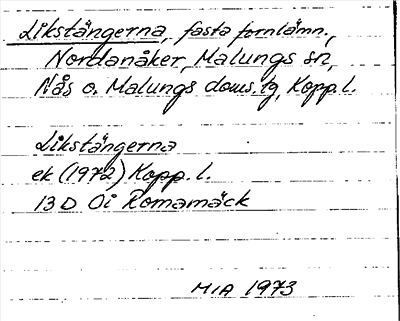 Likstängerna, fasta fornlämn.,
Nordanåker, Malungs sn,
Nås o. Malungs doms.tg, Kopp. l.
Likstängerna
ek (1972) Kopp. l.
13 D 0i Romamäck
MIA 1973